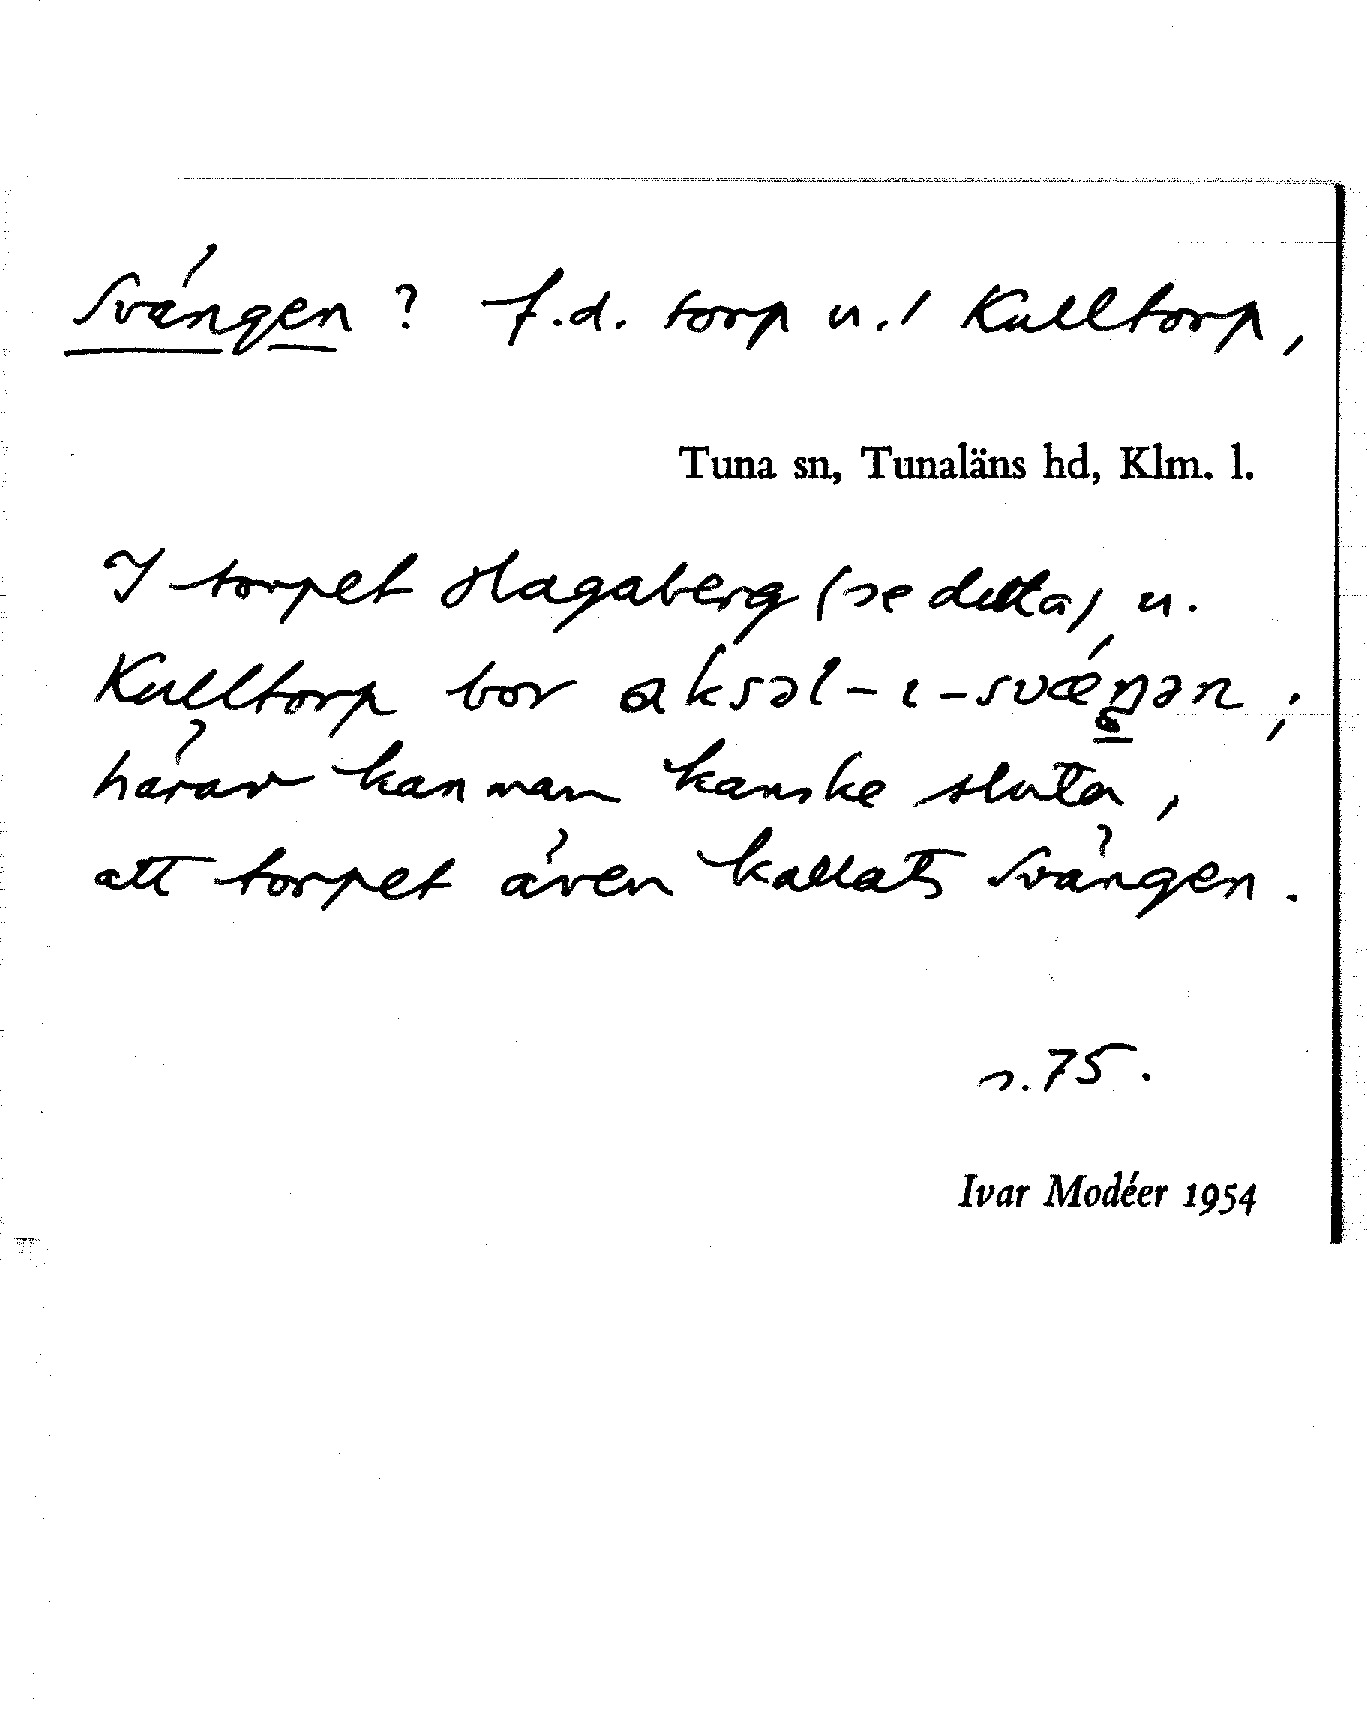 Svängen? f.d. torp u./ Kulltorp,
Tuna sn, Tunaläns hd, Klm. l.
I torpet Hagaberg (se detta) u.
Kulltorp bor aksəl-ı-svæŋən;
härav kan man kanske sluta,
att torpet även kallats Svängen.
s. 75.
Ivar Modéer 1954